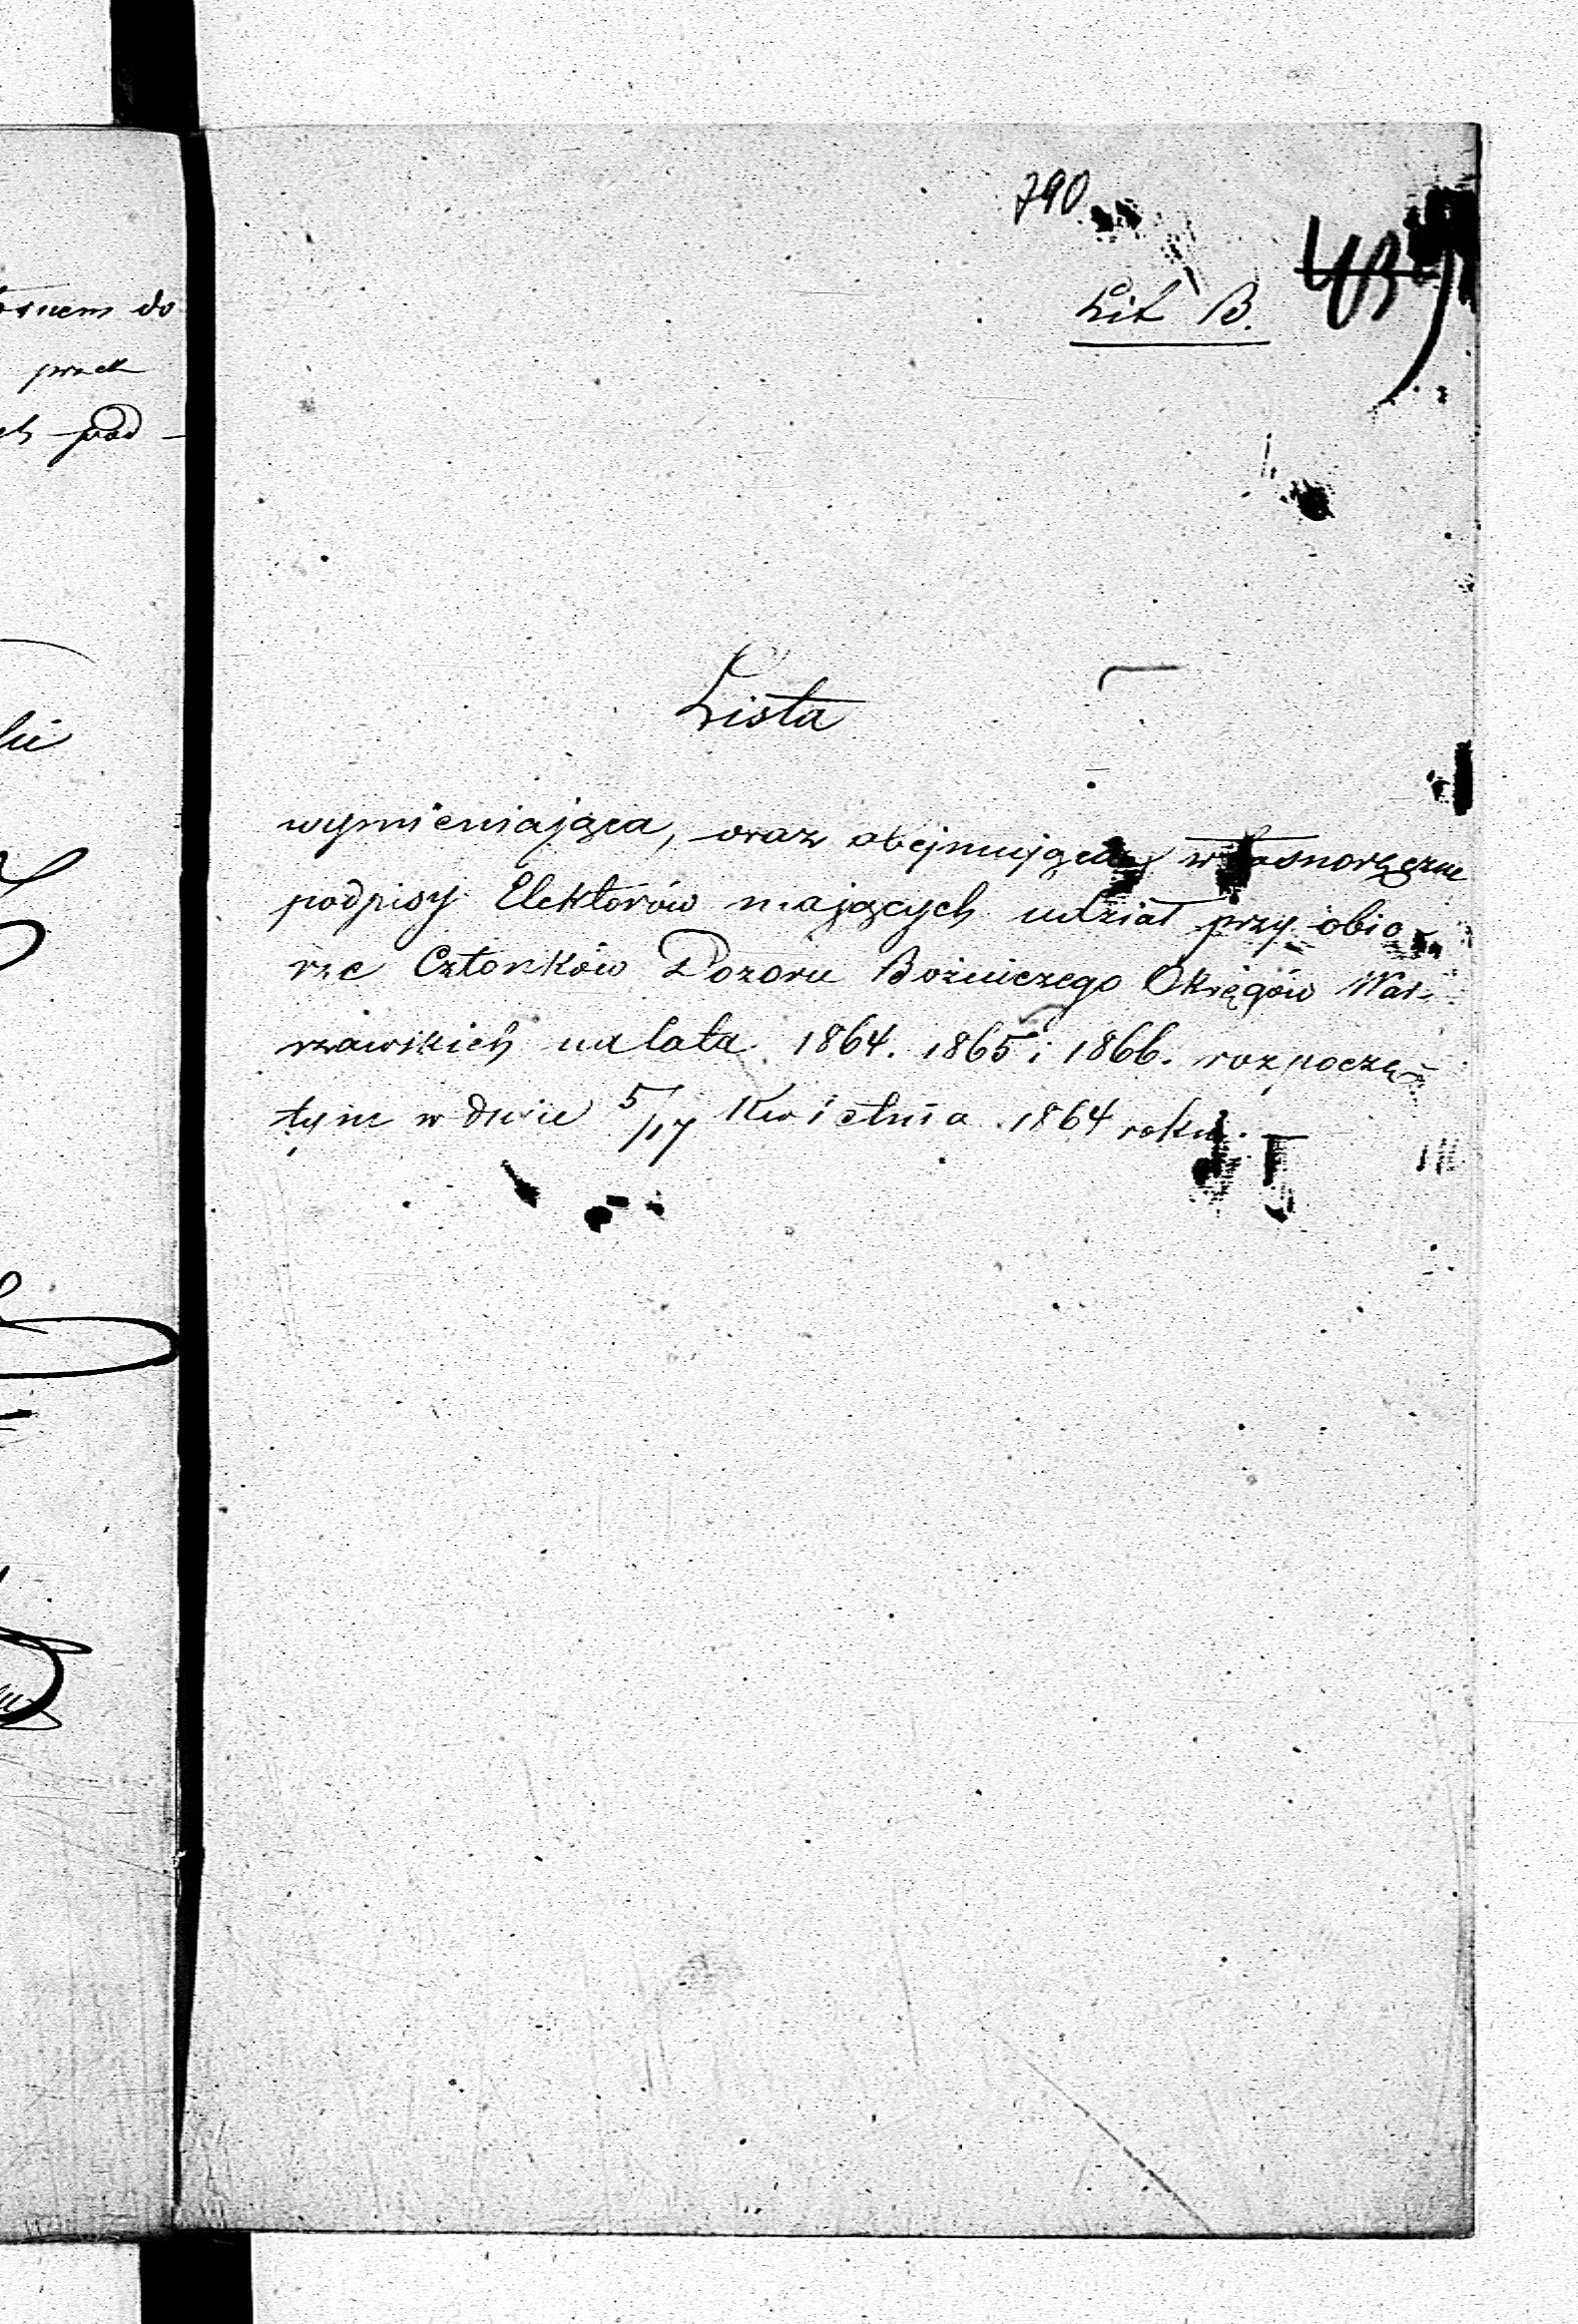 790
Lit B.
Lista
wymieniająca, oraz obejmująca własnoręczne
podpisy Elektorów mających udział przy obio
rze Członków Dozoru Bożniczego Okręgów War-
szawskich na lata 1864. 1865 i 1866. rozpoczę
tym w dniu 5/17 Kwietnia 1864 roku.
do
pod